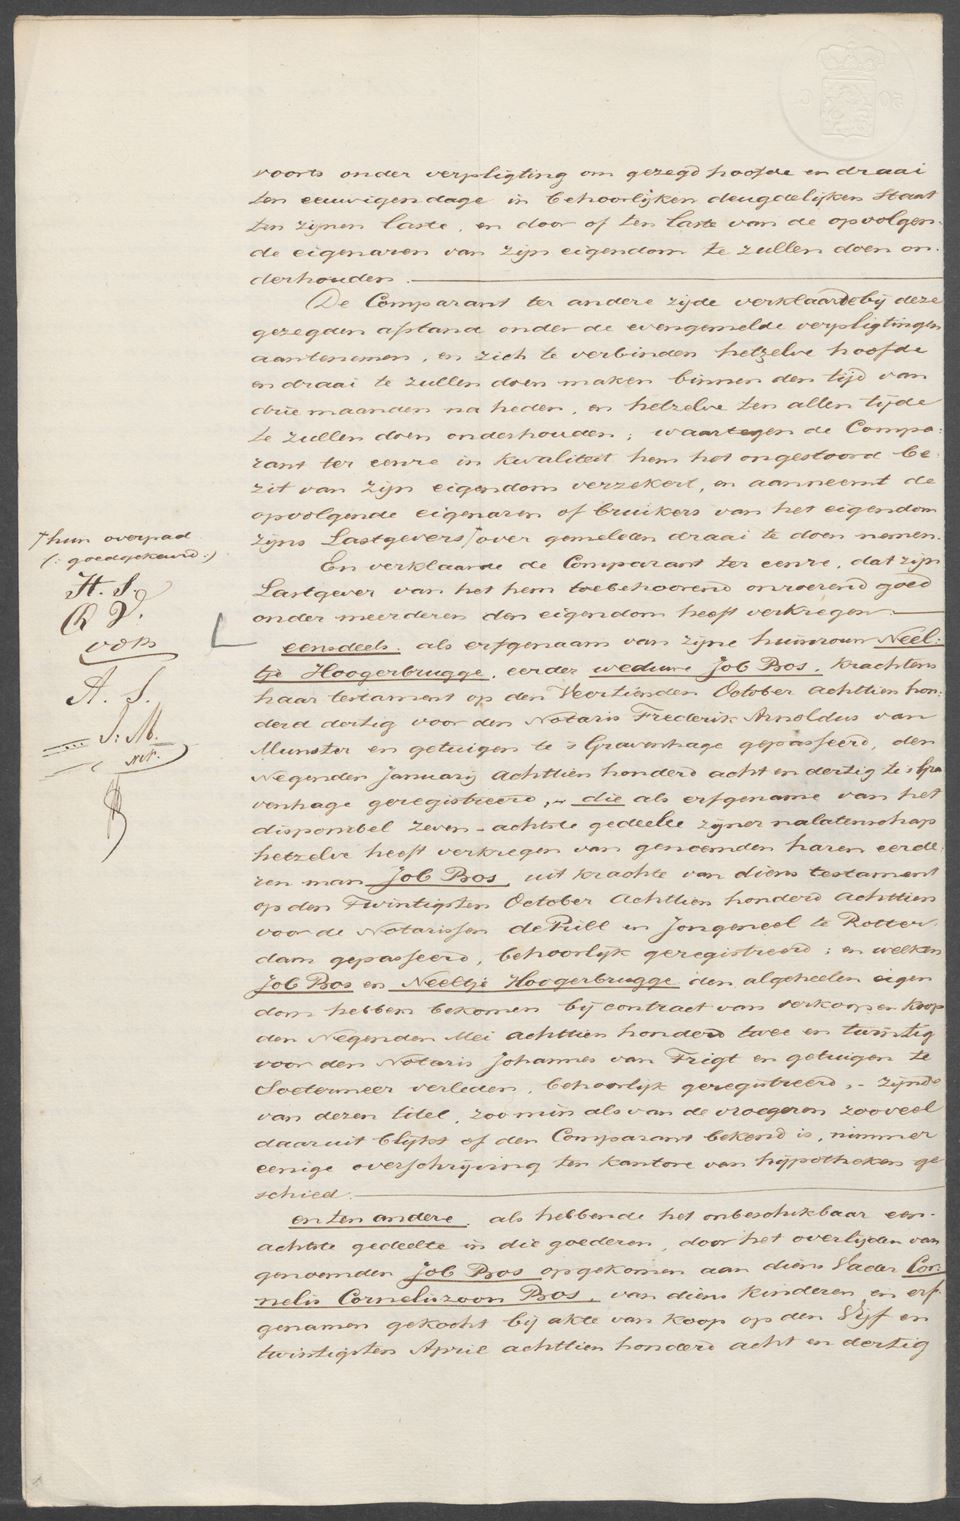 voorts onder verpligting om gezegd hoofde en draai
ten eeuwigendage in behoorlijken deugdelijken Staat
ten zijnen laste, en door of ten laste van de opvolgen-
de eigenaren van zijn eigendom te zullen doen on-
derhouden.
De Comparant ter andere zijde verklaarde bij deze
gezegden afstand onder de evengemelde verpligtingen
aantenemen, en zich te verbinden hetzelve hoofde
en draai te zullen doen maken binnen den tijd van
drie maanden na heden, en hetzelve ten allen tijde
te zullen doen onderhouden; waartegen de Compa-
rant ter eenre in kwaliteit hem het ongestoord be-
zit van zijn eigendom verzekert, en aanneemt de
opvolgende eigenaren of bruikers van het eigendom
zijns Lastgevers over gemelden draai te doen nemen.
† hun overpad
(: goedgekeurd :)
H. S.
vdB
A. S.
S: M.
Not.
En verklaarde de Comparant ter eenre, dat zijn
Lastgever van het hem toebehoorend onroerend goed
onder meerderen den eigendom heeft verkregen
eensdeels, als erfgenaam van zijne huisvrouw Neel-
tje Hoogerbrugge, eerder weduwe Job Bos, krachtens
haar testament op den Veertienden October achttien hon-
derd dertig voor den Notaris Frederik Arnoldus van
Munster en getuigen te 's Gravenhage gepasseerd, den
Negenden January achttien honderd acht en dertig te 's Gra
venhage geregistreerd, die als erfgename van het
disponibel zeven-achtste gedeelte zijner nalatenschap
hetzelve heeft verkregen van genoemden haren eerde-
ren man Job Bos, uit krachte van diens testament
op den Twintigsten October achttien honderd achttien
voor de Notarissen en Jongeneel te Rotter-
dam gepasseerd, behoorlijk geregistreerd; en welken
Job Bos en Neeltje Hoogerbrugge den algeheelen eigen
dom hebben bekomen bij contract van verkoop en koop
den Negenden Mei achttien honderd twee en twintig
voor den Notaris Johannes van Frigt en getuigen te
Soetermeer verleden, behoorlijk geregistreerd, - zijnde
van dezen titel, zoo min als van de vroegeren zooveel
daaruit blijkt of den Comparant bekend is, nimmer
eenige overschrijving ten kantore van hijpotheken ge
schied.
en ten andere, als hebbende het onbeschikbaar een-
achtste gedeelte in die goederen, door het overlijden van
genoemden Job Bos opgekomen aan diens Vader Cor-
nelis Corneliszoon Bos, van diens kinderen en erf-
genamen gekocht bij akte van koop op den Vijf en
twintigsten April achttien honderd acht en dertig